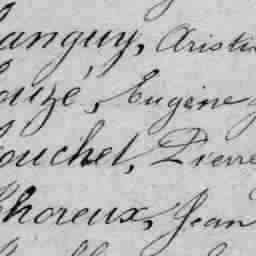 anguy, Aristi
ouzé, Eugène
ouchet, Pierre
Choreux, Jean